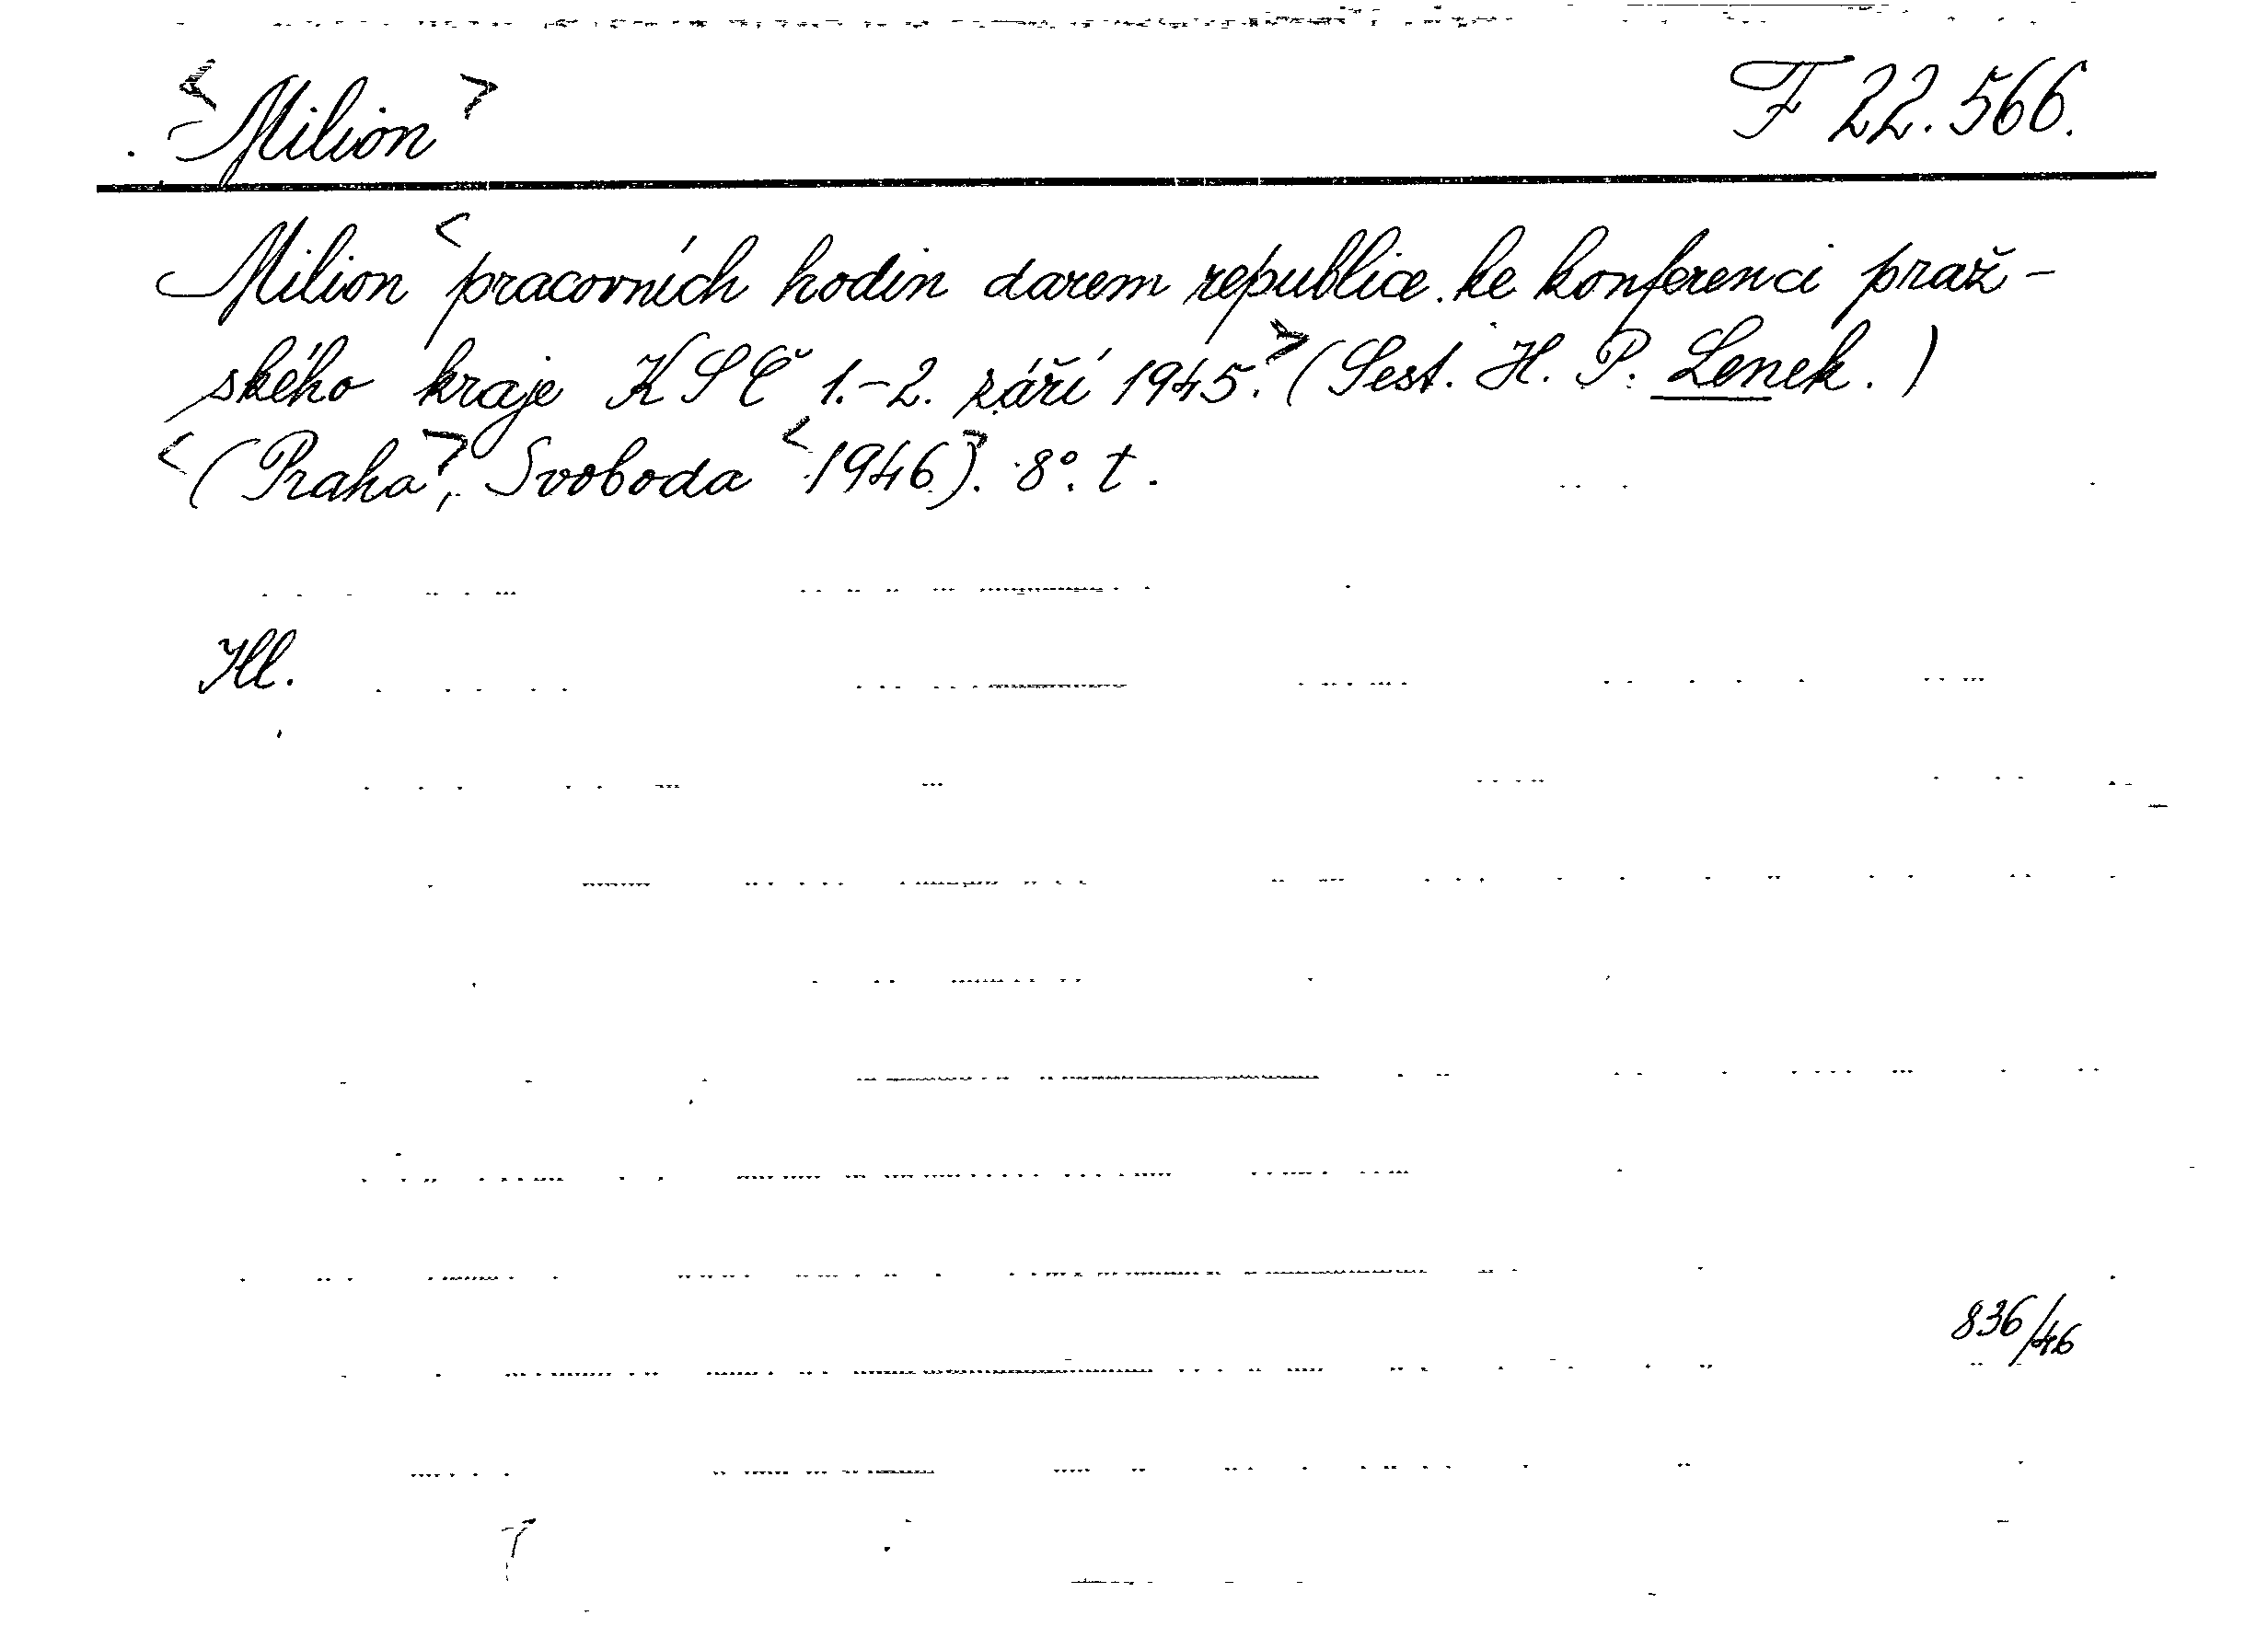 <Milion> F 22.566.
Milion <pracovních hodin darem republice. ke konferenci praž-
ského kraje KSČ 1.-2. září 1945.> (Sest. H. P. Lenek.)
<(Praha>, Svoboda <1946>). 8°. t.
Ill.
836/46